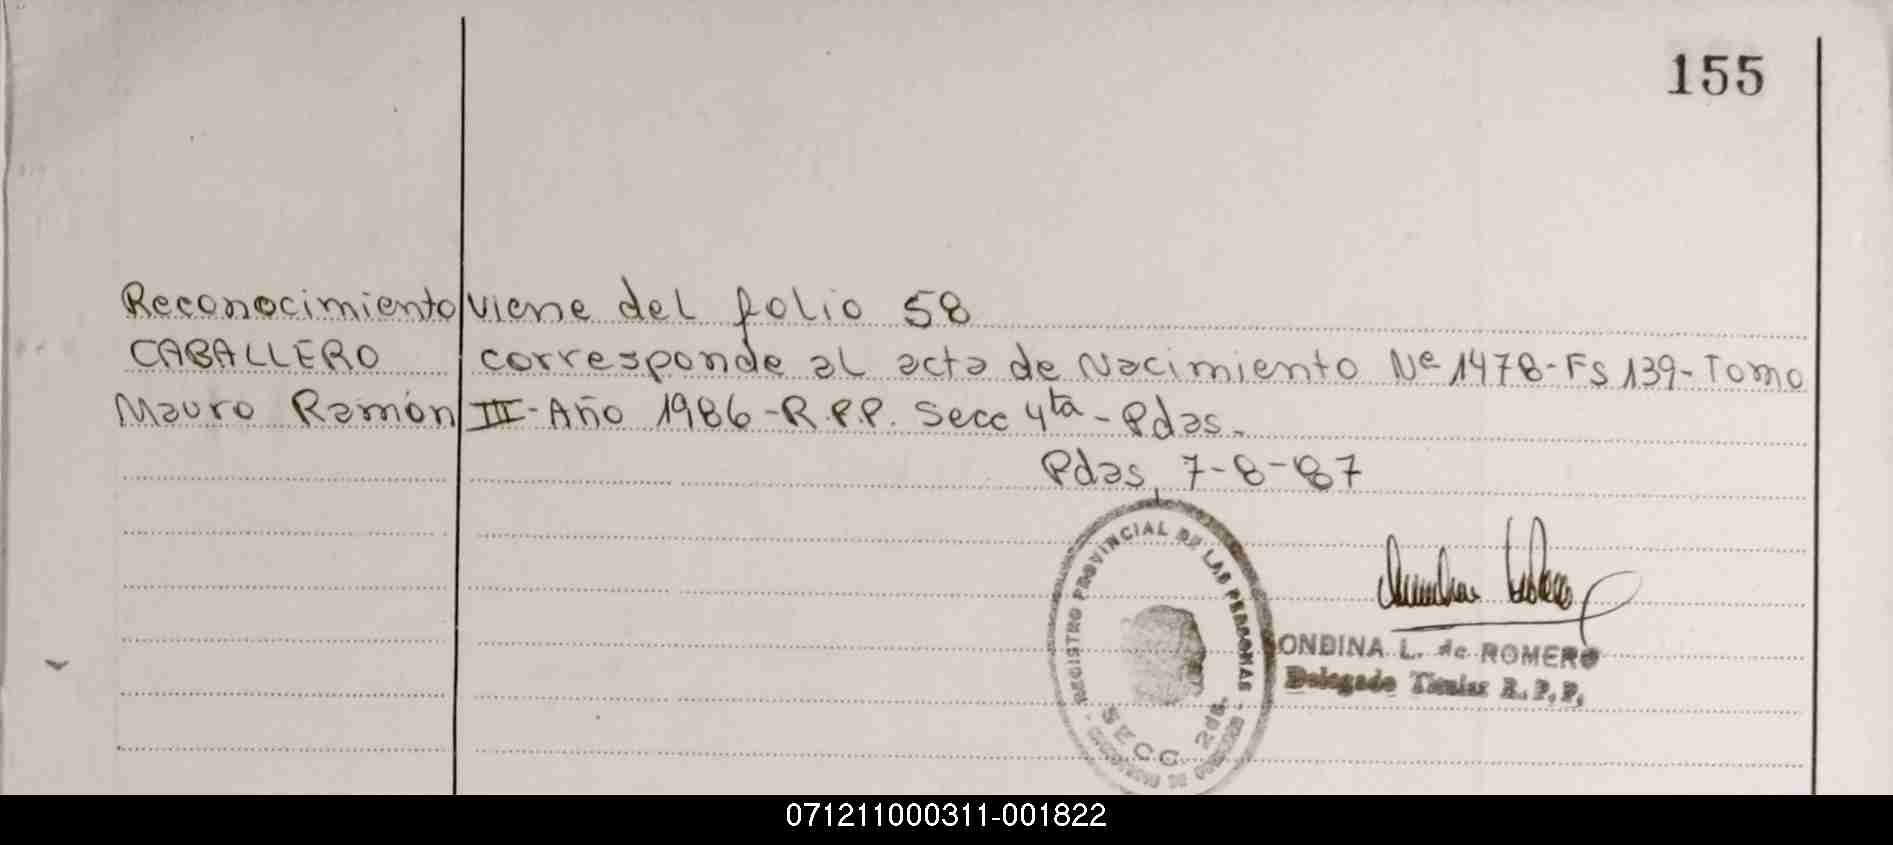 155
Reconocimiento viene del folio 58
CABALLERO corresponde al acta de Nacimiento Nº 1478-Fs 139-Tomo
Mauro Ramón III-Año 1986-R.P.P. Secc 4ta-Pdas.
Pdas, 7-8-87
REGISTRO PROVINCIAL DE LAS PERSONAS
SECC. 2da.
ONDINA L. de ROMERO
Delegado Titular R.P.P.
071211000311-001822